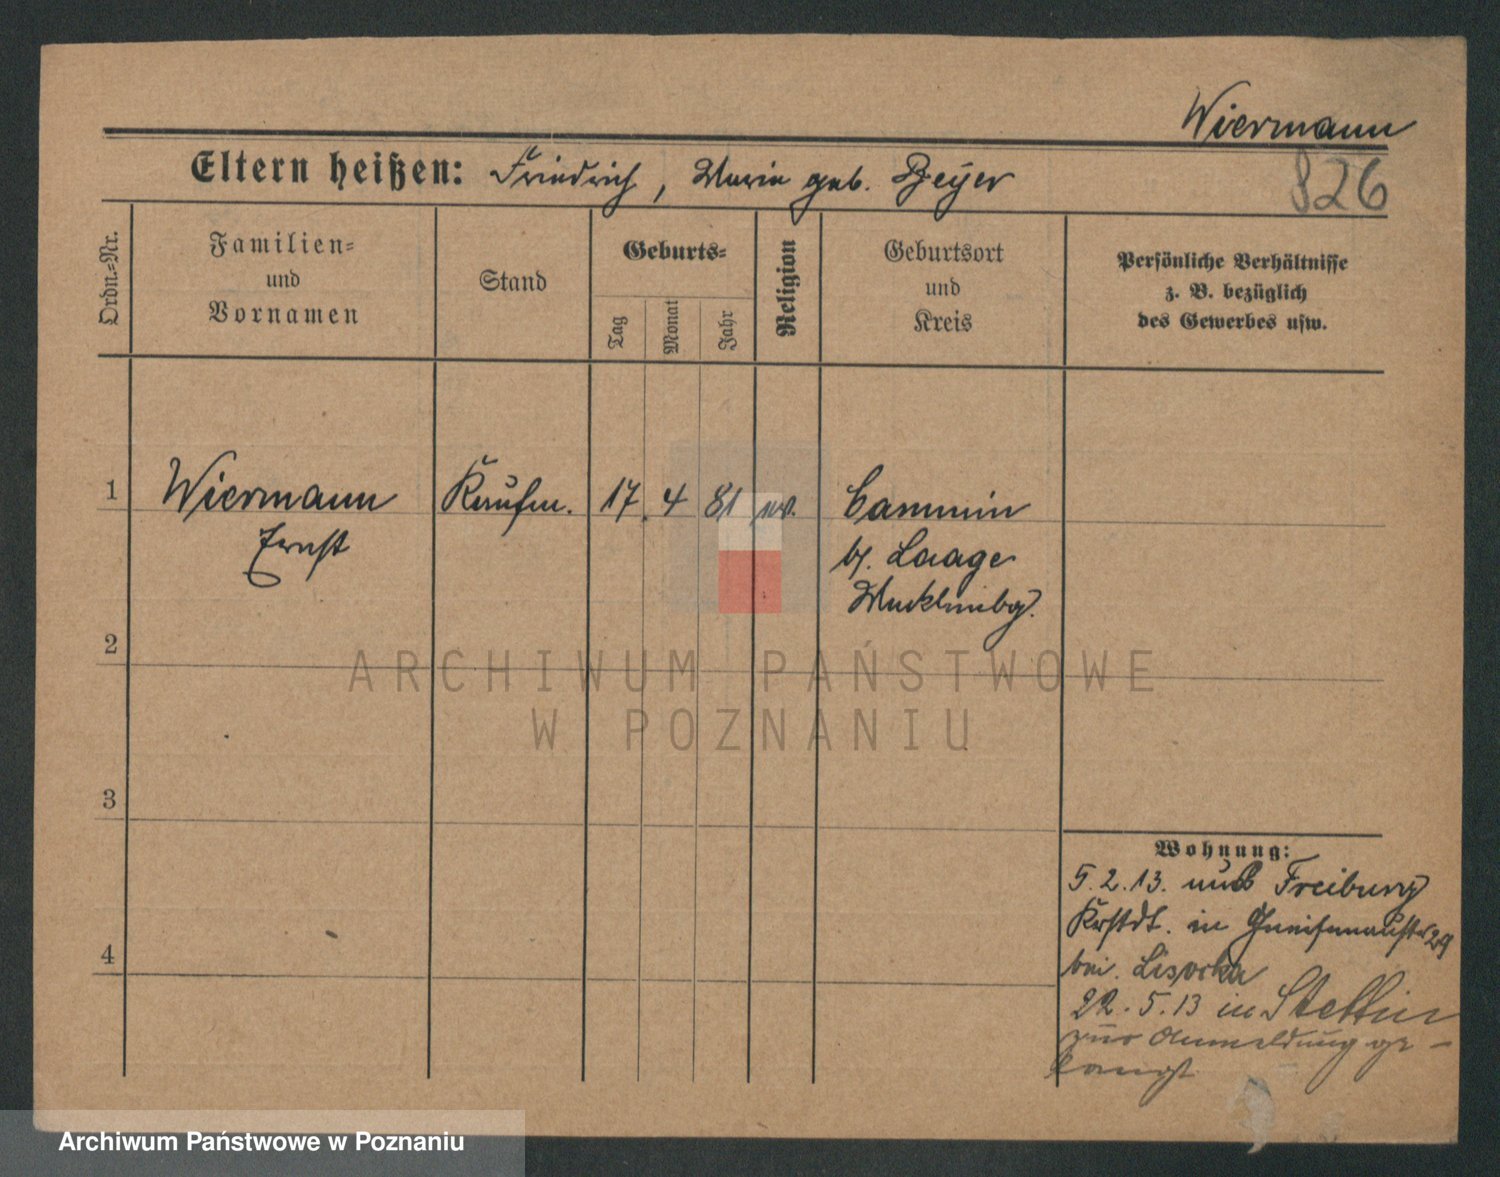 Wiermann
826
Eltern heißen: Friedrich, Marie geb. Beyer
Ordn.=Nr.
Familien=
und
Vornamen
Stand
Geburts=
Tag
Monat
Jahr
Religion
Geburtsort
und
Kreis
Persönliche Verhältnisse
z. B. bezüglich
des Gewerbes usw.
1 Wiermann Kaufm. 17. 4 81 ev. Cammin
Ernst b/. Laage
Mecklenbg.
2
ARCHIWUM PAŃSTWOWE
W POZNANIU
3
4
Wohnung:
5.2.13. aus Freiburg
in Gneisenaustr 29
bei. Lisorka
22.5.13 in Stettin
zur Anmeldung ge-
langt
Archiwum Państwowe w Poznaniu